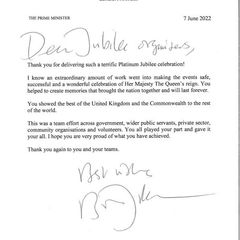 THE PRIME MINISTER
7 June 2022
Dear Jubilee organisers,
Thank you for delivering such a terrific Platinum Jubilee celebration!
I know an extraordinary amount of work went into making the events safe,
successful and a wonderful celebration of Her Majesty The Queen's reign. You
helped to create memories that brought the nation together and will last forever.
You showed the best of the United Kingdom and the Commonwealth to the rest
of the world.
This was a team effort across government, wider public servants, private sector,
community organisations and volunteers. You all played your part and gave it
your all. I hope you are very proud of what you have achieved.
Thank you again to you and your teams.
Best wishes